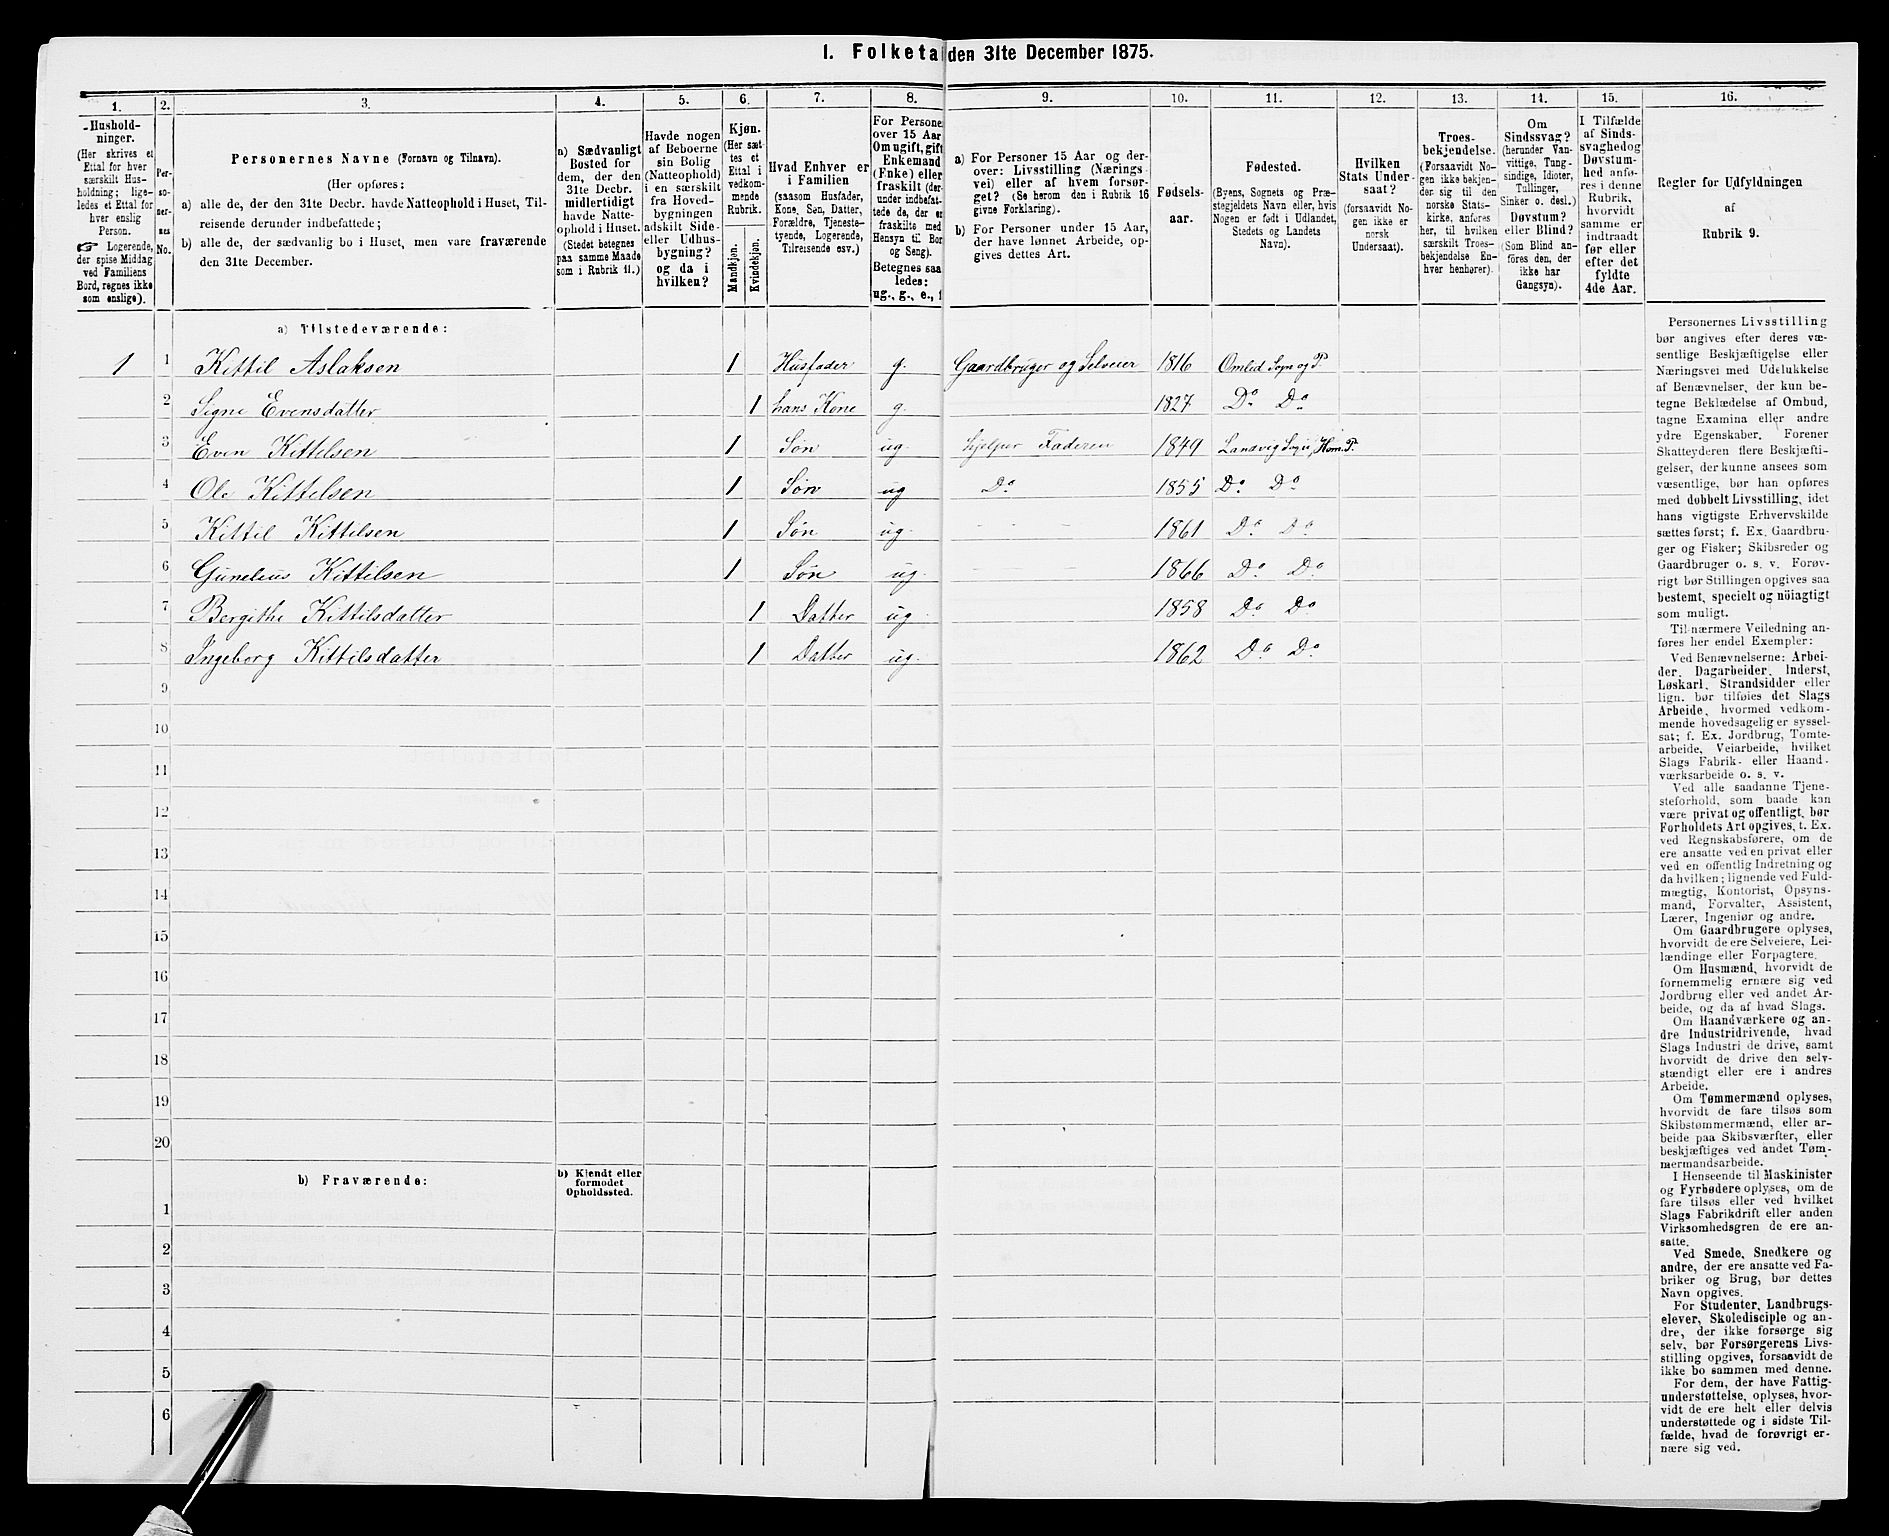 1. Folketal den 31te December 1875.
1. 2. 3. 4. 5. 6. 7. 8. 9. 10. 11. 12. 13. 14. 15. 16.
Hushold-
ninger.
(Her skrives et
Ettal for hver
særskilt Hus-
holdning; lige-
ledes et Ettal for
hver enslig
Person.
☞ Logerende,
der spise Middag
ved Familiens
Bord, regnes ikke
som enslige).
Per-
so-
ner-
nes
No.
Personernes Navne (Fornavn og Tilnavn).
(Her opføres:
a) alle de, der den 31te Decbr. havde Natteophold i Huset, Til-
reisende derunder indbefattede;
b) alle de, der sædvanlig bo i Huset, men vare fraværende
den 31te December.
a) Sædvanligt
Bosted for
dem, der den
31te Decbr.
midlertidigt
havde Natte-
ophold i Huset.
(Stedet betegnes
paa samme Maade
som i Rubrik 11.)
Havde nogen
af Beboerne
sin Bolig
(Natteophold)
i en særskilt
fra Hoved-
bygningen
adskilt Side-
eller Udhus-
bygning?
og da i
hvilken?
Kjøn.
(Her sæt-
tes et
Ettal i
vedkom-
mende
Rubrik.
Mandkjøn.
Kvindekjøn.
Hvad Enhver er
i Familien
(saasom Husfader,
Kone, Søn, Datter,
Forældre, Tjeneste-
tyende, Logerende,
Tilreisende osv.)
For Persone
over 15 Aar
Om ugift, gift
Enkemand
(Enke) eller
fraskilt (der-
under indbefat-
tede de, der er
fraskilte med
Hensyn til Bor
og Seng).
Betegnes saa
ledes:
ug., g., e., f
a) For Personer 15 Aar og der-
over: Livsstilling (Nærings-
vei) eller af hvem forsør-
get? (Se herom den i Rubrik 16
givne Forklaring).
b) For Personer under 15 Aar,
der have lønnet Arbeide, op-
gives dettes Art.
Fødsels-
aar.
Fødested.
(Byens, Sognets og Præ-
stegjeldets Navn eller, hvis
Nogen er født i Udlandet,
Stedets og Landets
Navn).
Hvilken
Stats Under-
saat?
(forsaavidt No-
gen ikke er
norsk
Undersaat).
Troes-
bekjendelse.
(Forsaavidt No-
gen ikke bekjen-
der sig til den
norske Stats-
kirke, anføres
her, til hvilken
særskilt Troes-
bekjendelse En-
hver henhører).
Om
Sindssvag?
(herunder Van-
vittige, Tung-
sindige, Idioter,
Tullinger,
Sinker o. desl.)
Døvstum?
eller Blind?
(Som Blind an-
føres den, der
ikke har
Gangsyn).
I Tilfælde
af Sinds-
svaghed og
Døvstum-
hed anfø-
res i denne
Rubrik,
hvorvidt
samme er
indtraadt
før eller
efter det
fyldte
4de Aar.
Regler for Udfyldningen
af
Rubrik 9.
a) Tilstedeværende:
1 1 Kittil Aslaksen 1 Husfader g. Gaardbruger og Selveier 1816 Omlid Sogn og P.
2 Signe Evensdatter 1 hans Kone g. 1827 Do Do
3 Even Kittelsen 1 Søn ug. hjelper Faderen 1849 Landvig Sogn, Hom. P.
4 Ole Kittelsen 1 Søn ug Do 1855 Do Do
5 Kittil Kittilsen 1 Søn ug. — — — 1861 Do Do
6 Gunelius Kittilsen 1 Søn ug. 1866 Do Do
7 Bergithe Kittilsdatter 1 Datter ug. 1858 Do Do
8 Ingeborg Kittilsdatter 1 Datter ug. 1862 Do Do
9
10
11
12
13
14
15
16
17
18
19
20
b) Fraværende:
b) Kjendt eller
formodet
Opholdssted.
1
2
3
4
5
6
Personernes Livsstilling
bør angives efter deres væ-
sentlige Beskjæftigelse eller
Næringsvei med Udelukkelse
af Benævnelser, der kun be-
tegne Beklædelse af Ombud,
tagne Examina eller andre
ydre Egenskaber. Forener
Skatteyderen flere Beskjæfti-
gelser, der kunne ansees som
væsentlige, bør han opføres
med dobbelt Livsstilling, idet
hans vigtigste Erhvervskilde
sættes først; f. Ex. Gaardbru-
ger og Fisker; Skibsreder og
Gaardbruger o. s. v. Forøv-
rigt bør Stillingen opgives saa
bestemt, specielt og nöiagtigt
som muligt.
Til nærmere Veiledning an-
føres her endel Exempler:
Ved Benævnelserne: Arbei-
der, Dagarbeider, Inderst,
Løskarl, Strandsidder eller
lign. bør tilføies det Slags
Arbeide, hvormed vedkom-
mende hovedsagelig er syssel-
sat; f. Ex. Jordbrug, Tomte-
arbeide, Veiarbeide, hvilket
Slags Fabrik- eller Haand-
værksarbeide o. s. v.
Ved alle saadanne Tjene-
steforhold, som baade kan
være privat og offentligt, bør
Forholdets Art opgives, t. Ex.
ved Regnskabsførere, om de
ere ansatte ved en privat eller
ved en offentlig Indretning og
da hvilken; lignende ved Fuld-
mægtig, Kontorist, Opsyns-
mand, Forvalter, Assistent,
Lærer, Ingeniør og andre.
Om Gaardbrugere oplyses,
hvorvidt de ere Selveiere, Lei-
lændinge eller Forpagtere.
Om Husmænd, hvorvidt de
fornemmelig ernære sig ved
Jordbrug eller ved andet Ar-
beide, og da af hvad Slags.
Om Haandværkere og an-
dre Industridrivende, hvad
Slags Industri de drive, samt
hvorvidt de drive den selv-
stændigt eller ere i andres
Arbeide.
Om Tømmermænd oplyses,
hvorvidt de fare tilsøs som
Skibstømmermænd, eller ar-
beide paa Skibsværfter, eller
beskjæftiges ved andet Tøm-
mermandsarbeide.
I Henseende til Maskinister
og Fyrbødere oplyses, om de
fare tilsøs eller ved hvilket
Slags Fabrikdrift eller anden
Virksomhedsgren de ere an-
satte.
Ved Smede, Snedkere og
andre, der ere ansatte ved Fa-
briker og Brug, bør dettes
Navn opgives.
For Studenter, Landbrugs-
elever, Skoledisciple og an-
dre, der ikke forsørge sig
selv, bør Forsørgerens Livs-
stilling opgives, forsaavidt de
ikke bo sammen med denne.
For dem, der have Fattig-
understøttelse, oplyses, hvor-
vidt de ere helt eller delvis
understøttede og i sidste Til-
fælde, hvad de forøvrigt er-
nære sig ved.